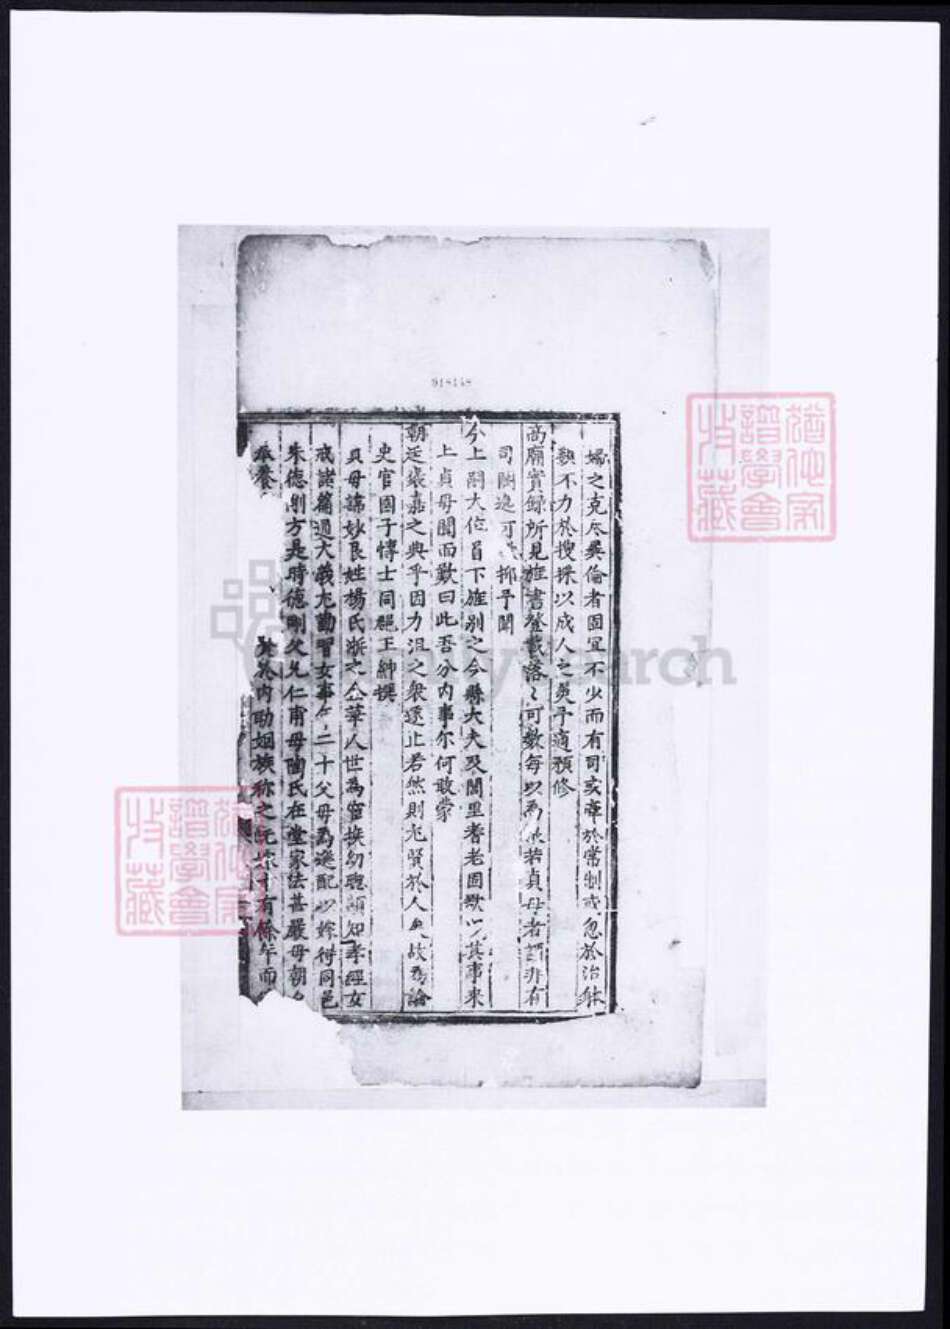 918448
婦之克尽彛倫者固宜不少而有司亥牽於常制或忽於治
埶不力於搜採以成人之美予適預修
高廟實録所見旌書登載落〻可數每以為若貞母者謂非有
司闕逸可抑予聞
今上嗣大位首下旌别之令縣大夫及閭里耆老囙歟以其事来
上貞母聞而歎曰此吾分内事尔何敢蒙
朝廷褒嘉之典乎因力沮之衆遂止若然則尤賢於人矣故為論
史官國子博士同郡王紳撰
貞母諱妙良姓楊氏浙之金華人世為宦族幼聰頴知孝經女
戒諸篇通大義尤勤習女事年二十父母為選配以嫁得同邑
朱德剛方是時德剛父允仁甫母陶氏在堂家法甚嚴母朝夕
承養
内助姻族称之有餘年而
猶他家譜學會收藏
猶他家譜學會收藏
FamilySearch